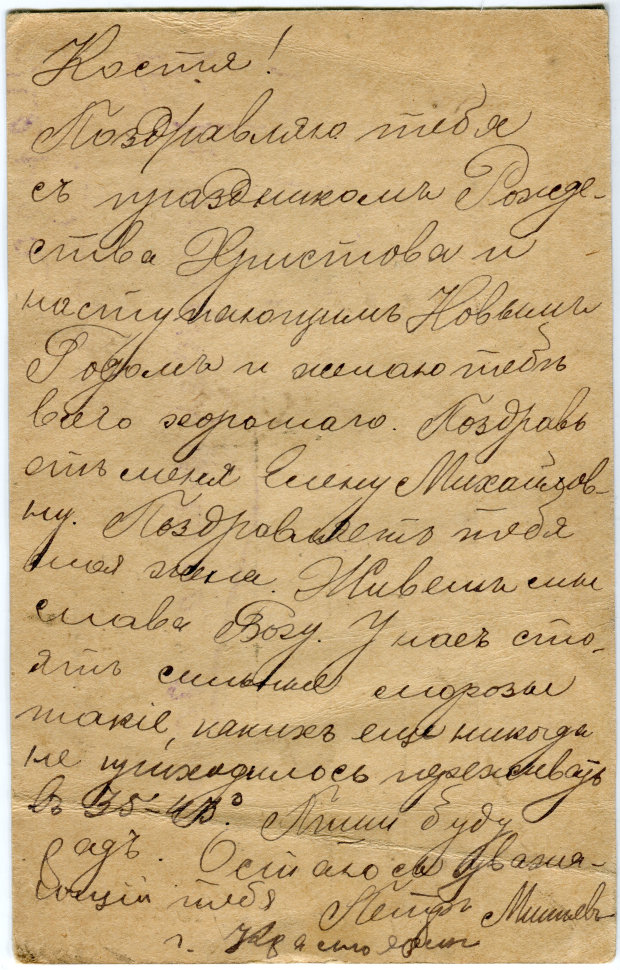 Костя!
Поздравляю тебя
съ праздникомъ Рожде-
ства Христова и
наступающимъ Новымъ
Годомъ и желаю тебѣ
всего хорошаго. Поздравь
отъ меня Елену Михайлов-
ну. Поздравляетъ тебя
моя жена. Живемъ мы
слава Богу. У насъ сто-
ятъ сильные морозы
такіе, какихъ еще никогда
не приходилось переживать
въ 35-40°. Пиши буду
радъ. Остаюсь уважа-
ющій тебя Петръ
г. Красноярскъ